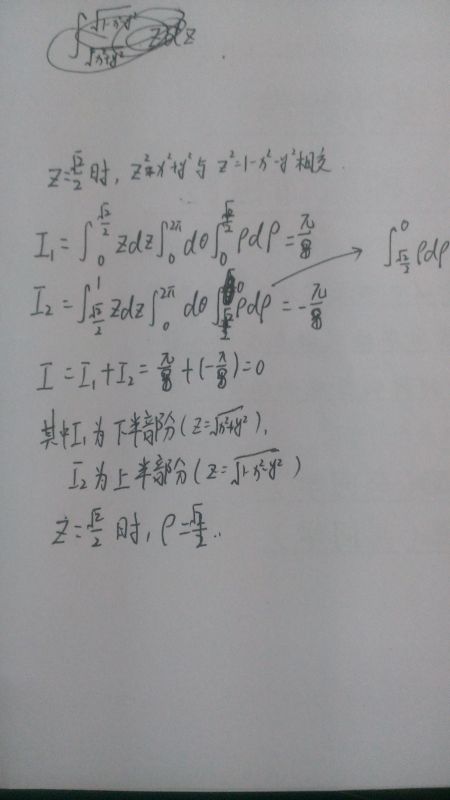 ∫_{√(x²+y²)}^{√(1-x²-y²)} zdz
z=√2/2 时, z²=x²+y² 与 z²=1-x²-y² 相交.
I₁=∫_0^{√2/2} zdz∫_0^{2π} dθ∫_0^{√2/2} ρdρ=π/8
∫_{√2/2}^0 ρdρ
I₂=∫_{√2/2}^1 zdz∫_0^{2π} dθ∫_{√2/2}^0 ρdρ=-π/8
I=I₁+I₂=π/8+(-π/8)=0
其中I₁为下半部分(z=√(x²+y²)),
I₂为上半部分(z=√(1-x²-y²))
z=√2/2 时, ρ=√2/2..